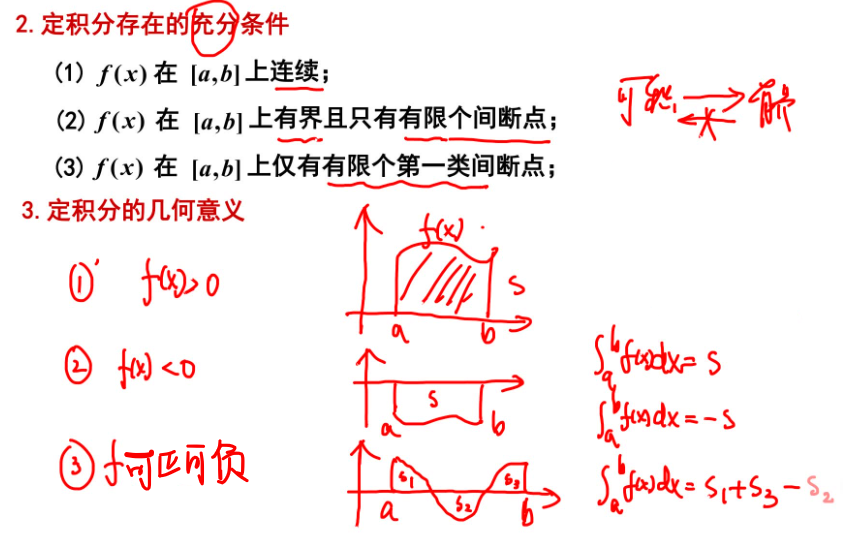 2. 定积分存在的充分条件
(1) f(x) 在 [a,b] 上连续;
(2) f(x) 在 [a,b] 上有界且只有有限个间断点;
(3) f(x) 在 [a,b] 上仅有有限个第一类间断点;
可积 → 有界
3. 定积分的几何意义
① f(x)>0
f(x)
S
a b
∫_a^b f(x)dx = S
② f(x)<0
S
a b
∫_a^b f(x)dx = -S
③ f可正可负
S₁ S₂ S₃
a b
∫_a^b f(x)dx = S₁+S₃-S₂